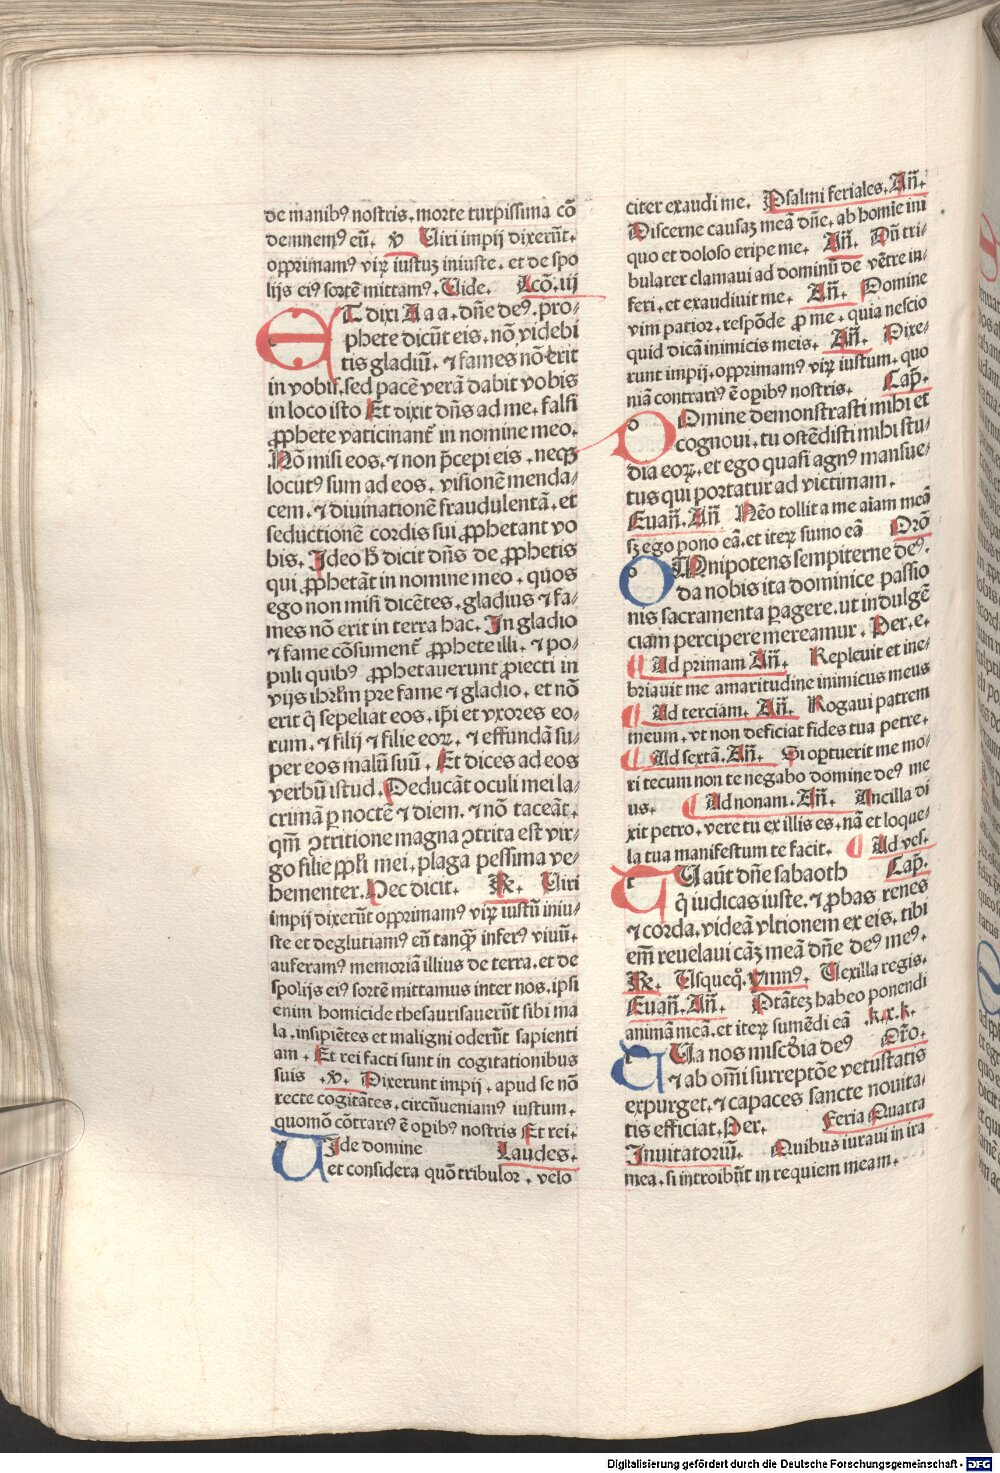 de manibꝰ nostris. morte turpissima cō
demnemꝰ eū. ꝟ Uiri impij dixerūt.
opprimamꝰ virꝝ iustuꝫ iniuste. et de spo
lijs eiꝰ sortē mittamꝰ. Uide. Lcō. iij
ET dixi Aaa. dn̄e deꝰ. pro-
phete dicūt eis. nō videbi
tis gladiū. ⁊ fames nō erit
in vobis. sed pacē verā dabit vobis
in loco isto Et dixit dn̄s ad me. falsi
ꝓphete vaticinant̄ in nomine meo.
Nō misi eos. ⁊ non p̄cepi eis. neqꝫ
locutꝰ sum ad eos. visionē menda-
cem. ⁊ diuinationē fraudulentā. et
seductionē cordis sui ꝓphetant vo
bis. Ideo h̄ dicit dn̄s de ꝓphetis
qui ꝓphetāt in nomine meo. quos
ego non misi dicētes. gladius ⁊ fa-
mes nō erit in terra hac. In gladio
⁊ fame cōsument̄ ꝓphete illi. ⁊ po-
puli quibꝰ ꝓphetauerunt ꝓiecti in
vijs ihrl̄m pre fame ⁊ gladio. et nō
erit q̄ sepeliat eos. ip̄i et vxores eo-
rum. ⁊ filij ⁊ filie eoꝝ. ⁊ effundā su-
per eos malū suū. Et dices ad eos
verbū istud. Deducāt oculi mei la-
crimā ꝑ noctē ⁊ diem. ⁊ nō taceāt.
qm̄ ꝯtritione magna ꝯtrita est vir-
go filie ppl̄i mei. plaga pessima ve-
hementer. Hec dicit. ℟. Uiri
impij dixerūt opprimamꝰ virꝝ iustū iniu-
ste et deglutiamꝰ eū tanqꝫ inferꝰ viuū.
auferamꝰ memoriā illius de terra. et de
spolijs eiꝰ sortē mittamus inter nos. ipsi
enim homicide thesaurisauerūt sibi ma
la. insipiētes et maligni oderūt sapienti
am. Et rei facti sunt in cogitationibus
suis. ꝟ. Dixerunt impij. apud se nō
recte cogitātes. circūueniamꝰ iustum.
quomō cōtrariꝰ ē opibꝰ nostris Et rei.
UIde domine Laudes.
et considera quō tribulor. velo
citer exaudi me. Psalmi feriales. An̄.
Discerne causaꝫ meā dn̄e. ab homie ini
quo et doloso eripe me. An̄. Dū tri-
bularer clamaui ad dominū de vētre in-
feri. et exaudiuit me. An̄. Domine
vim patior. respōde ꝓ me. quia nescio
quid dicā inimicis meis. An̄. Dixe-
runt impij. opprimamꝰ virꝝ iustum. quo
niā contrariꝰ ē opibꝰ nostris. Cap̄.
DOmine demonstrasti mihi et
cognoui. tu ostēdisti mihi stu-
dia eoꝝ. et ego quasi agnꝰ mansue-
tus qui portatur ad victimam.
Euan̄. An̄ Nēo tollit a me aīam meā
sꝫ ego pono eā. et iteꝝ sumo eā Orō
OMnipotens sempiterne deꝰ.
da nobis ita dominice passio
nis sacramenta ꝑagere. ut indulgē
ciam percipere mereamur. Per. e.
Ad primam An̄. Repleuit et ine-
briauit me amaritudine inimicus meus
Ad terciam. An̄. Rogaui patrem
meum. vt non deficiat fides tua petre.
Ad sextā. An̄. Si oportuerit me mo-
ri tecum non te negabo domine deꝰ me
us. Ad nonam. An̄. Ancilla di
xit petro. vere tu ex illis es. nā et loque-
la tua manifestum te facit. Ad ves.
TU aūt dn̄e sabaoth Cap̄.
q̄ iudicas iuste. ⁊ ꝓbas renes
⁊ corda. videā vltionem ex eis. tibi
em̄ reuelaui cāꝫ meā dn̄e deꝰ meꝰ.
℟. Usquequo. Ymnꝰ. Uexilla regis.
Euan̄. An̄. Ptātez habeo ponendi
animā meā. et iteꝝ sumēdi eā .k.x.k.
TUa nos misc̄dia deꝰ Orō.
⁊ ab om̄i surreptōe vetustatis
expurget. ⁊ capaces sancte nouita-
tis efficiat. Per. Feria Quarta
Inuitatoriū. Quibus iuraui in ira
mea. si introibūt in requiem meam.
Digitalisierung gefördert durch die Deutsche Forschungsgemeinschaft - DFG